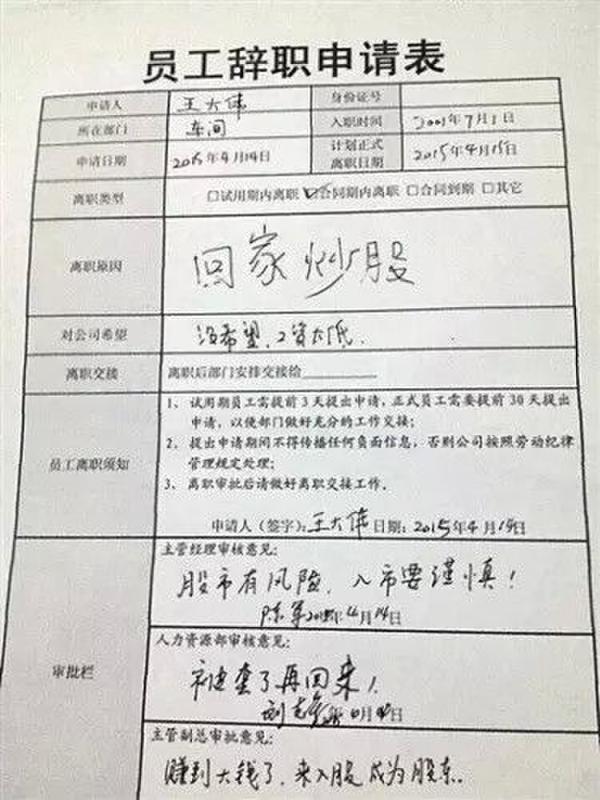 员工辞职申请表
申请人 王大伟 身份证号
所在部门 车间 入职时间 2001年7月1日
申请日期 2015年4月14日 计划正式离职日期 2015年4月15日
离职类型 □试用期内离职 ☑合同期内离职 □合同到期 □其它
离职原因 回家炒股
对公司希望 没希望、工资太低.
离职交接 离职后部门安排交接给
员工离职须知
1、试用期员工需提前3天提出申请,正式员工需要提前30天提出
申请,以便部门做好充分的工作交接;
2、提出申请期间不得传播任何负面信息,否则公司按照劳动纪律
管理规定处理;
3、离职审批后请做好离职交接工作。
申请人(签字):王大伟 日期:2015年4月 日
审批栏
主管经理审核意见:
股市有风险、入市要谨慎!
陈军 年4月14日
人力资源部审核意见:
被套了再回来!
刘 年 月 日
主管副总审批意见:
赚到大钱了,来入股成为股东.